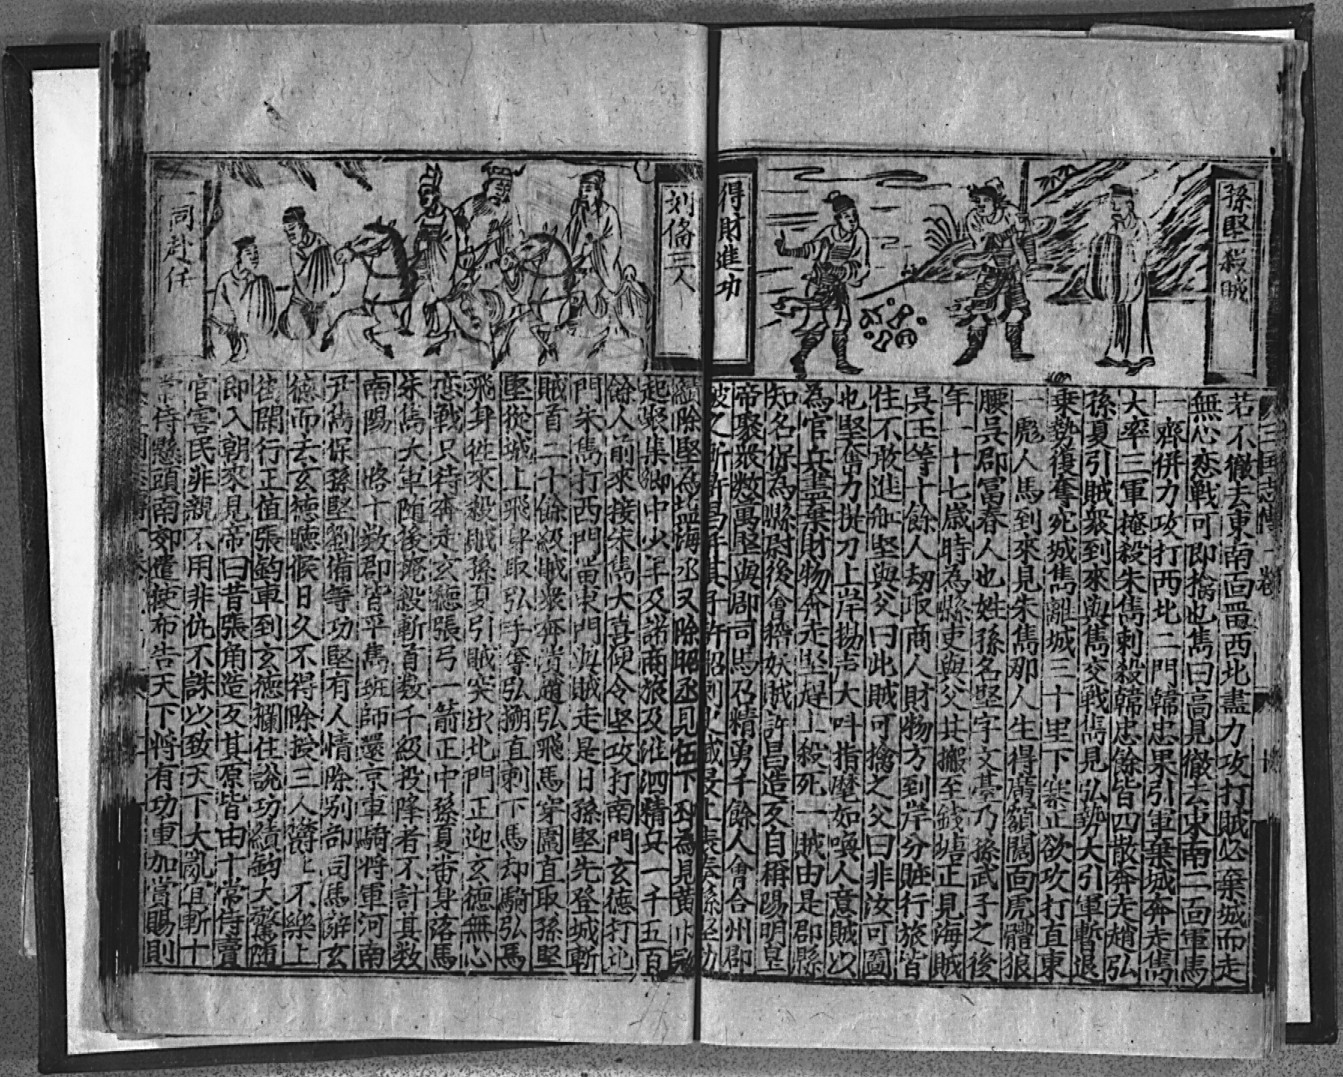 孫堅殺賊
得財進功
三國志傳一卷
若不徹去東南面畱西北盡力攻打賊必棄城而走
無心恋戰可即擒也雋曰高見徹去東南二面軍馬
一齊併力攻打西北二門韓忠果引軍棄城奔走雋
大率三軍掩殺朱雋刺殺韓忠餘皆四散奔走趙弘
孫夏引賊衆到來與雋交戰雋見弘勢大引軍暫退
乗勢復奪宛城雋離城三十里下寨正欲攻打直東
一彪人馬到來見朱雋那人生得廣額闊面虎體狼
腰吳郡冨春人也姓孫名堅字文臺乃孫武子之後
年一十七歳時為縣吏與父共搬至錢塘正見海賊
吳玉等十餘人刼取商人財物方到岸分賍行旅皆
住不敢進舡堅與父曰此賊可擒之父曰非汝可圖
也堅奮力提刀上岸揚声大呌指麾如喚人意賊以
為官兵盡棄財物奔走堅趕上殺死一賊由是郡縣
知名保為縣尉後會稽妖賊許昌造反自稱陽明皇
帝聚衆數萬堅與郡司馬召精勇千餘人會合州郡
破之斬許昌
劉偹三人
同赴任
續除堅為塩瀆丞又除盱眙丞見任下邳丞為見黃巾
起聚集鄉中少年及諸商旅及淮泗精兵一千五百
餘人前來接朱雋大喜便令堅攻打南門玄徳打北
門朱雋打西門畱東門與賊走是日孫堅先登城斬
賊首二十餘級賊衆奔潰趙弘飛馬穿圍直取孫堅
堅從城上飛身取弘手奪弘搠直刺下馬却騎弘馬
飛身往來殺賊孫夏引賊突出北門正迎玄德無心
恋戰只待奔走玄德張弓一箭正中孫夏畨身落馬
朱雋大軍隨後掩殺斬首数千級投降者不計其数
南陽一路十数郡皆平雋班師還京車騎將軍河南
尹雋保孫堅劉偹等功堅有人情除别部司馬辝玄
德而去玄徳聽候日久不得除授三人欝上不樂上
街閒行正值張鈞車到玄德攔住說功績鈞大驚随
即入朝來見帝曰昔張角造反其原皆由十常侍賣
官害民非親不用非仇不誅以致天下大亂宜斬十
常侍懸頭南郊遣使布告天下將有功重加賞賜則